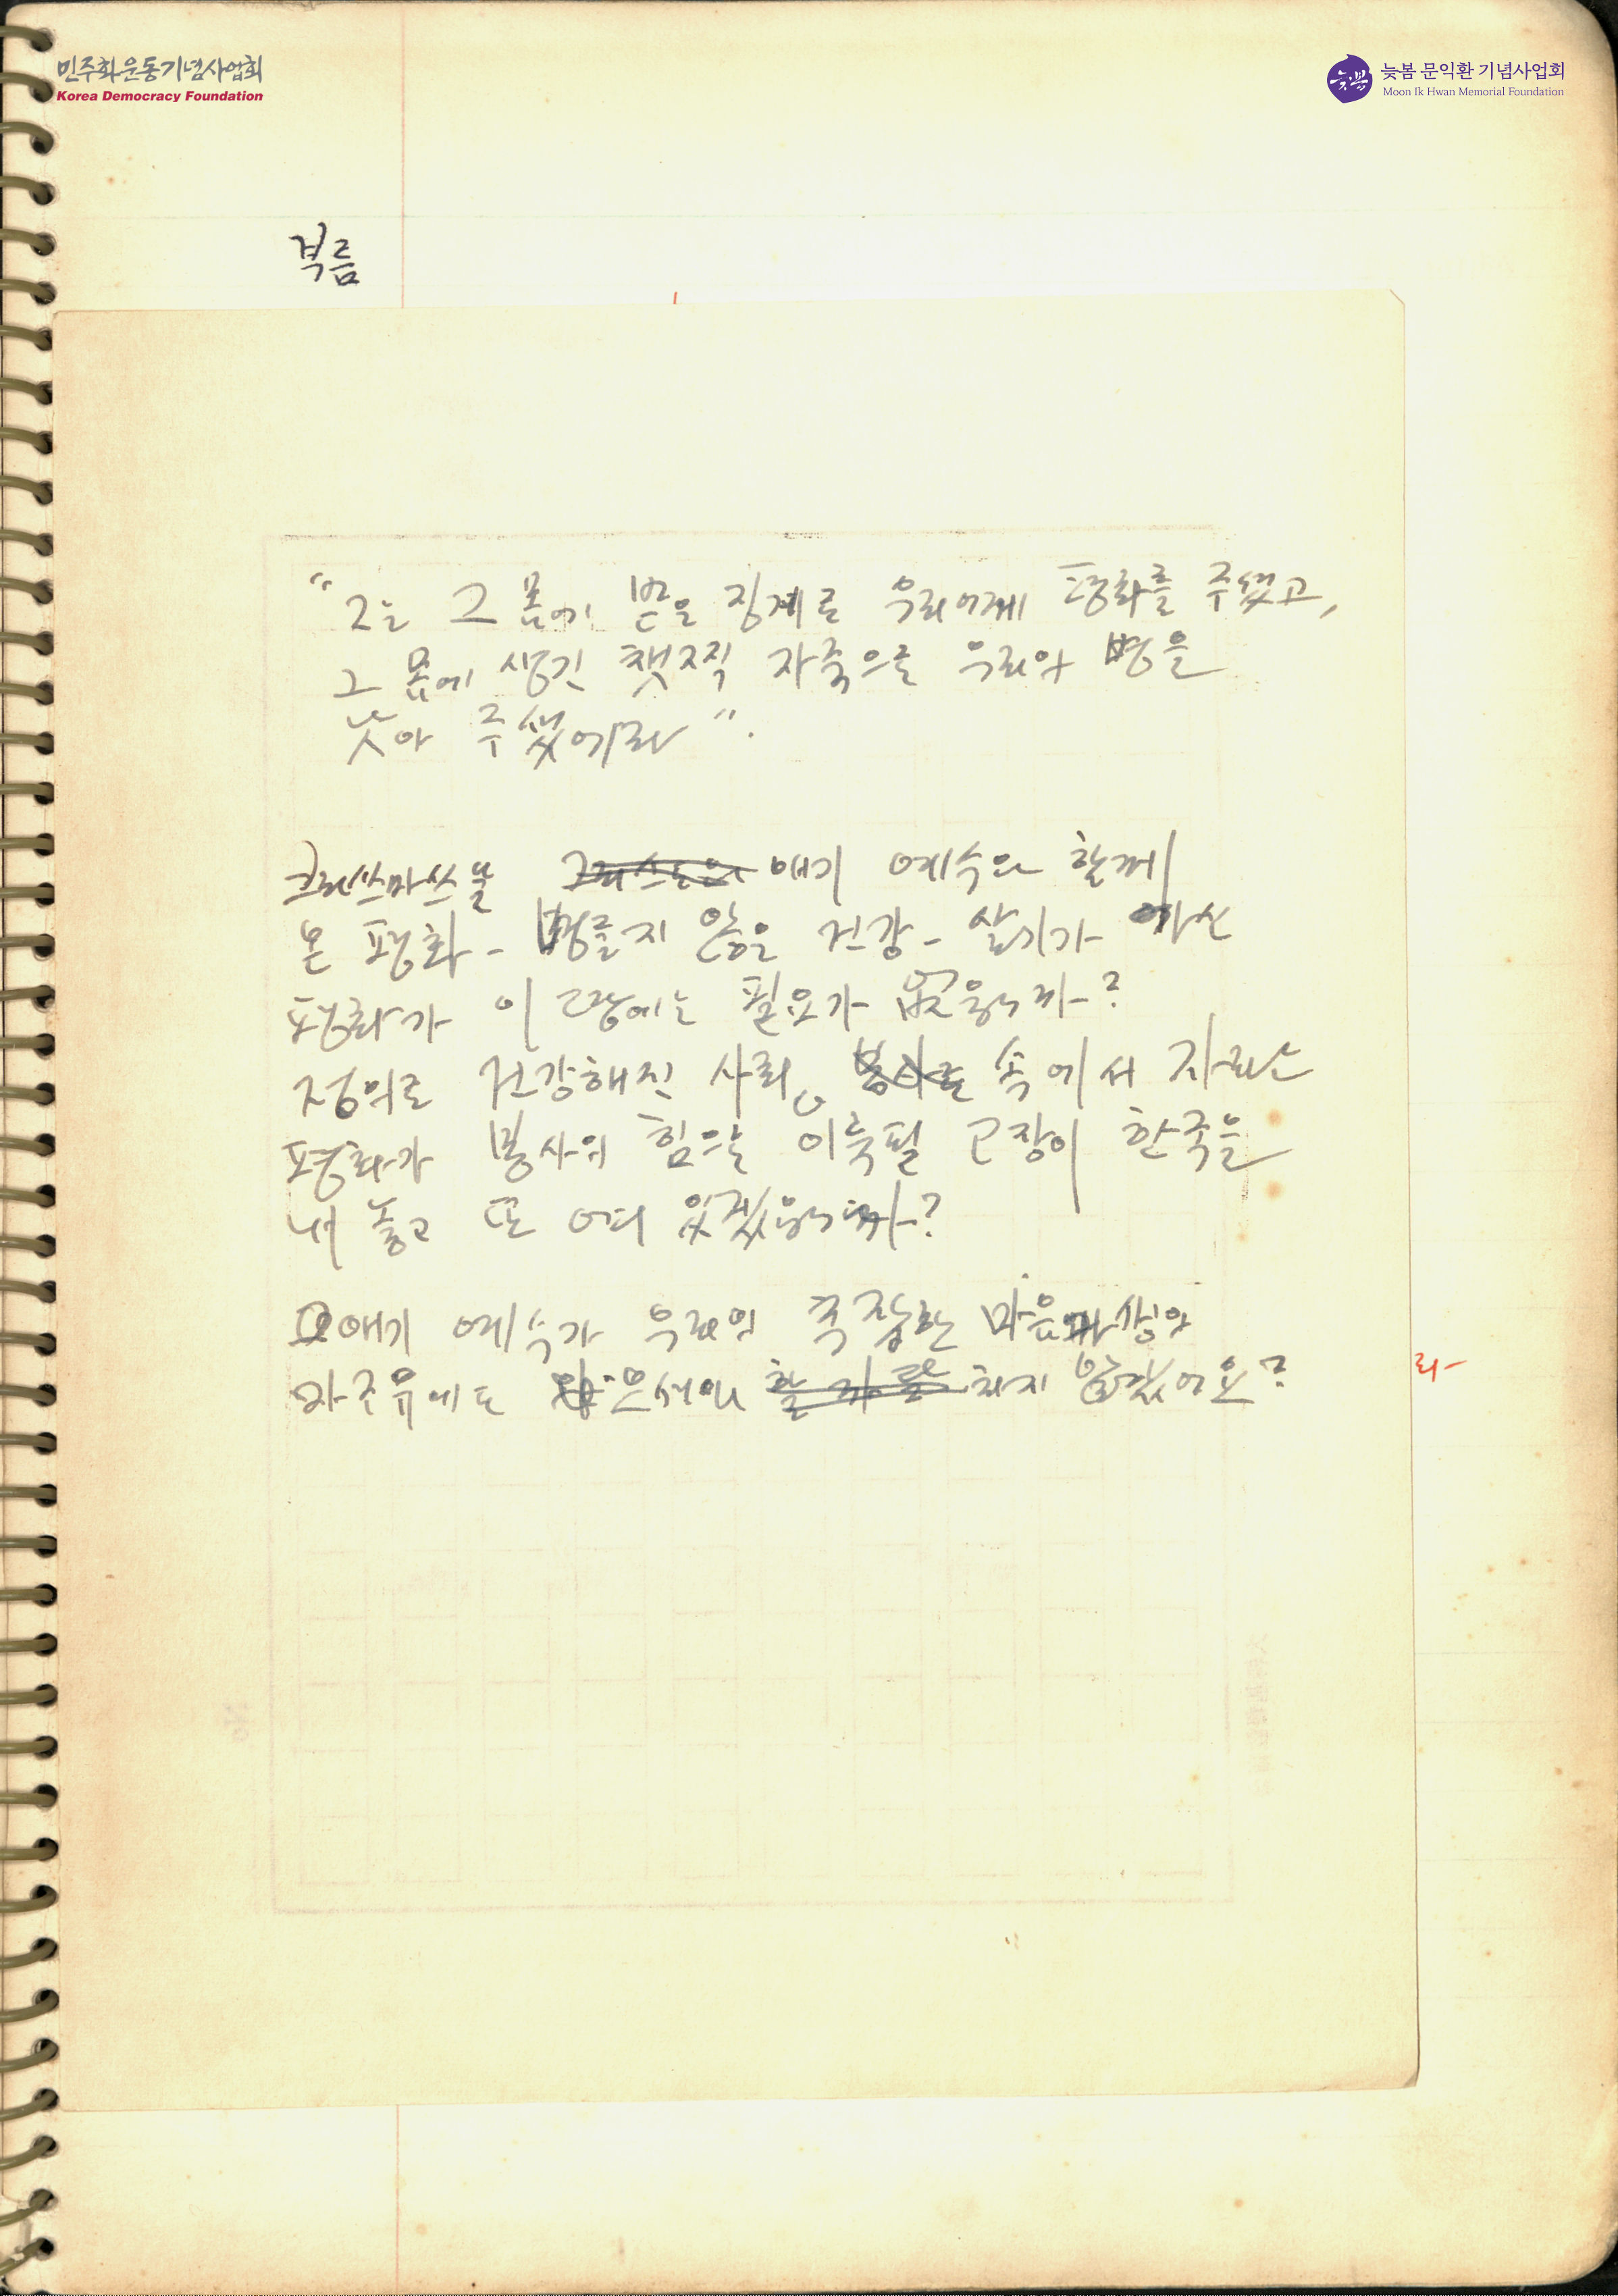 민주화운동기념사업회
Korea Democracy Foundation
늦봄 문익환 기념사업회
Moon Ik Hwan Memorial Foundation
늦봄
부름
"그는 그 몸에 받은 징계로 우리에게 평화를 주셨고,
그 몸에 생긴 챗찍 자죽으로 우리의 병을
낫아 주셨에라".
크리쓰마쓰를 애기 예수와 함께
본 평화 - 병들지 않은 건강 - 살기가 가신
평화가 이 땅에는 필요가 없읍니까?
정의로 건강해진 사회 속에서 자라는
평화가 봉사의 힘으로 이룩될 고장이 한국을
내놓고 또 어디 있겠읍니까?
애기 예수가 우리의 마음
에도 치지 않겠어요?
리-